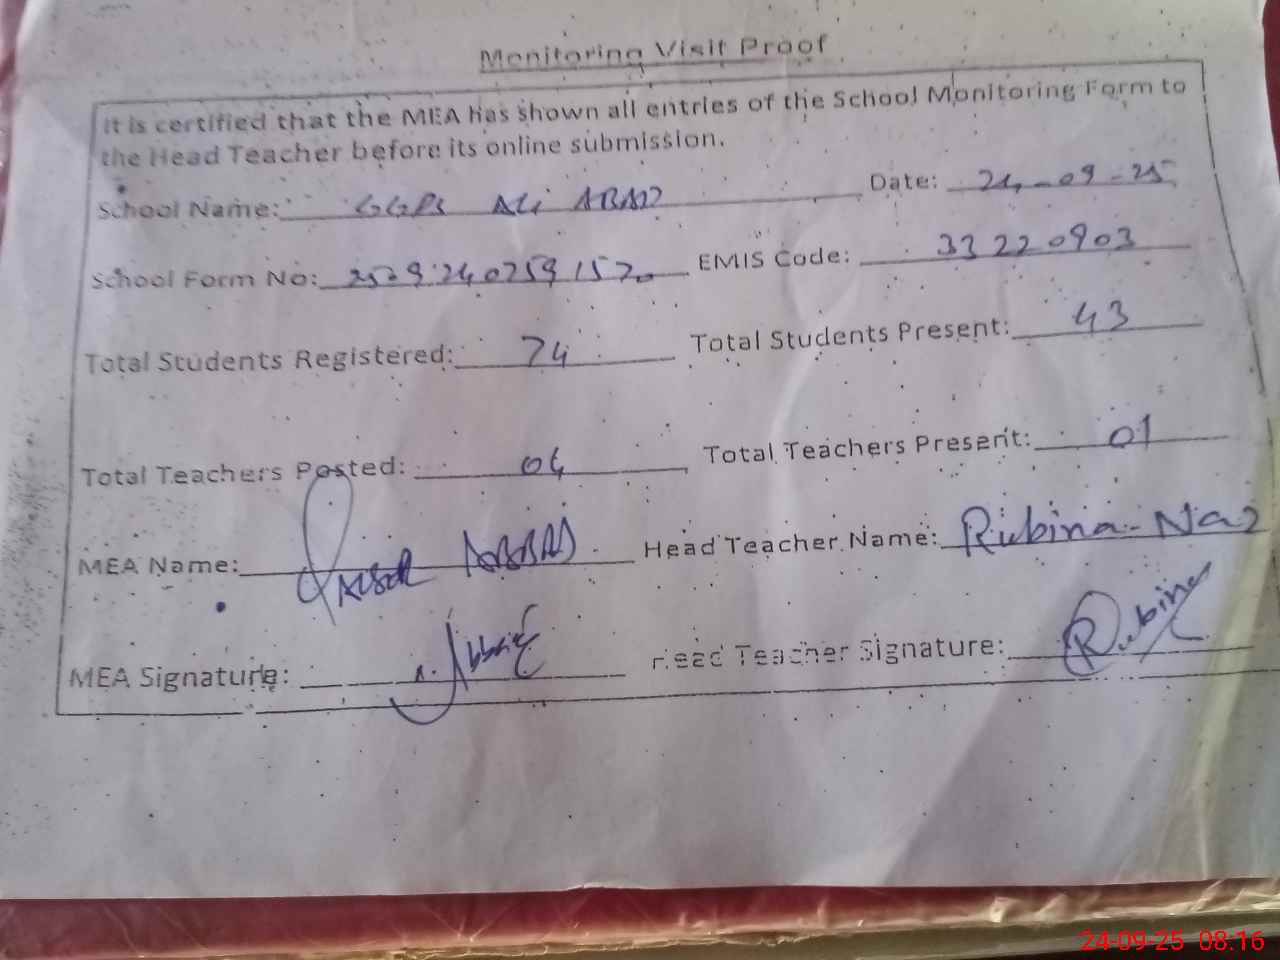 Monitoring Visit Proof
It is certified that the MEA has shown all entries of the School Monitoring Form to
the Head Teacher before its online submission.
School Name: GGPS Ali ABAD Date: 24-09-25
School Form No: EMIS Code: 33220903
Total Students Registered: 74 Total Students Present: 43
Total Teachers Posted: 04 Total Teachers Present: 01
MEA Name: ABBAS Head Teacher Name: Rubina Naz
MEA Signature: Head Teacher Signature: Rubina
24-09-25 08:16